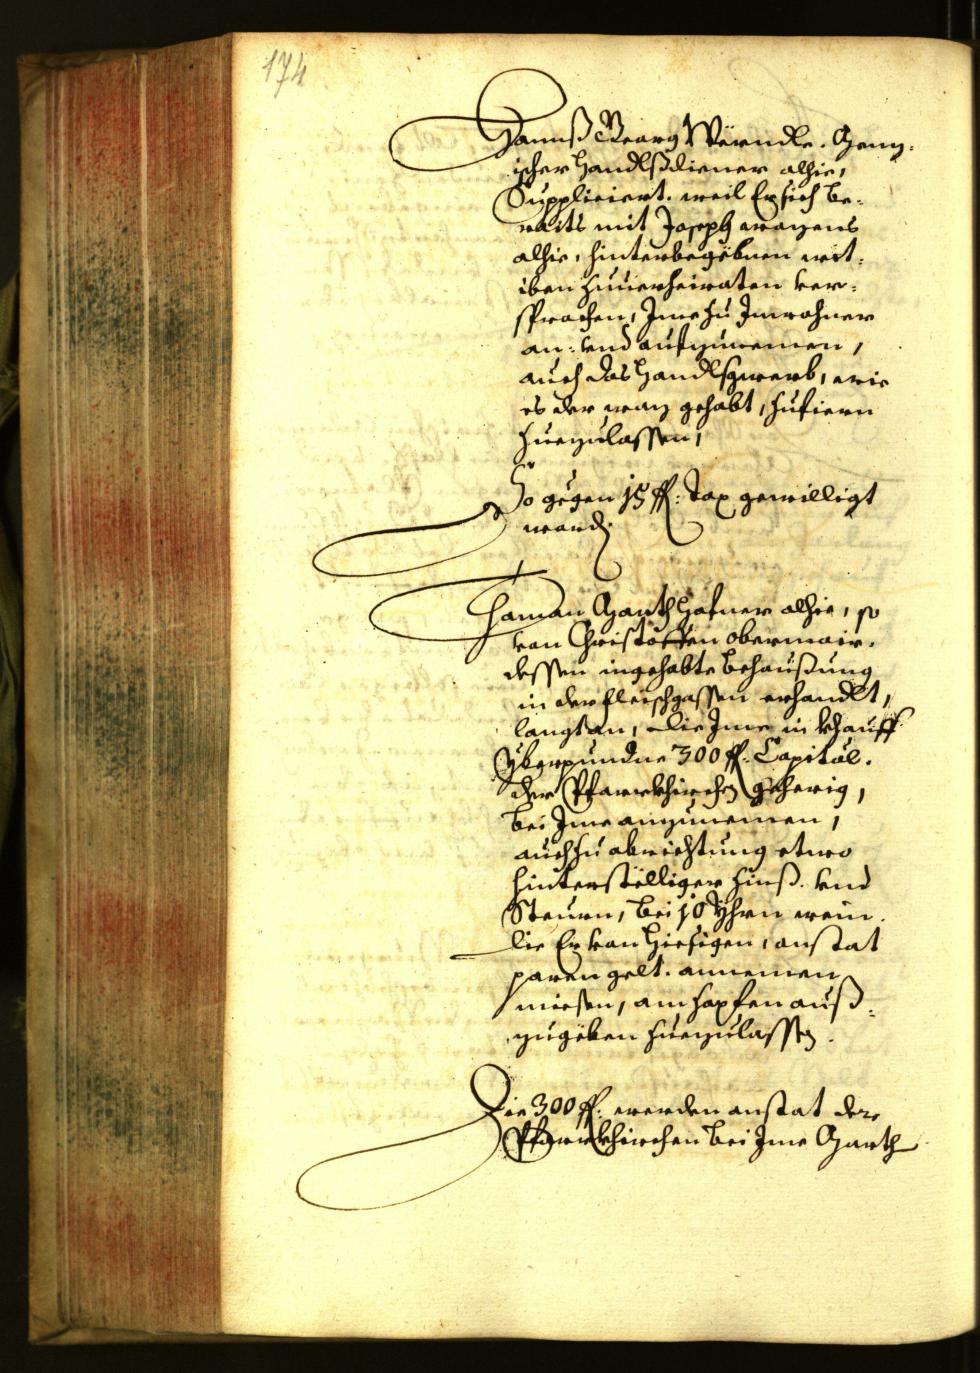 174
Hannß Georg Werndle. Gemy:
ischer Handlßdiener alhie,
Suppliciert. weil Er sich be:
raits mit Joseph wagens
alhie, hinterbegebnen wit:
iben zuuerheiraten ver:
sprochen, Ime zu Inwohner
an: vnd aufzunemen,
auch das Handlsgwerb, wie
es der wag gehabt, zufiern
zuezulassen,
So gegen 15 ff: Tax gewilligt
wordn
Thaman Garth Hafner alhie, so
von Christoffen obermair.
dessen ingehabte Behaußung
in der fleischgassen erhandlt,
langt an, die Ime in khauff
yberpundne 300 ff. Capital.
der Pfarrkhirchen geherig,
bei Ime anzunemen,
auch zu abrichtung etwo
hinterstelliger Zinß. vnd
Steurn, bei 10 Yhrn wein.
die Er von hiesigen, anstat
paren gelt. annemen
miesen, am Zapfen auß:
zugeben zuezulassen.
Die 300 ff: werden anstat der
Pfarrkhirchen bei Ime Garth